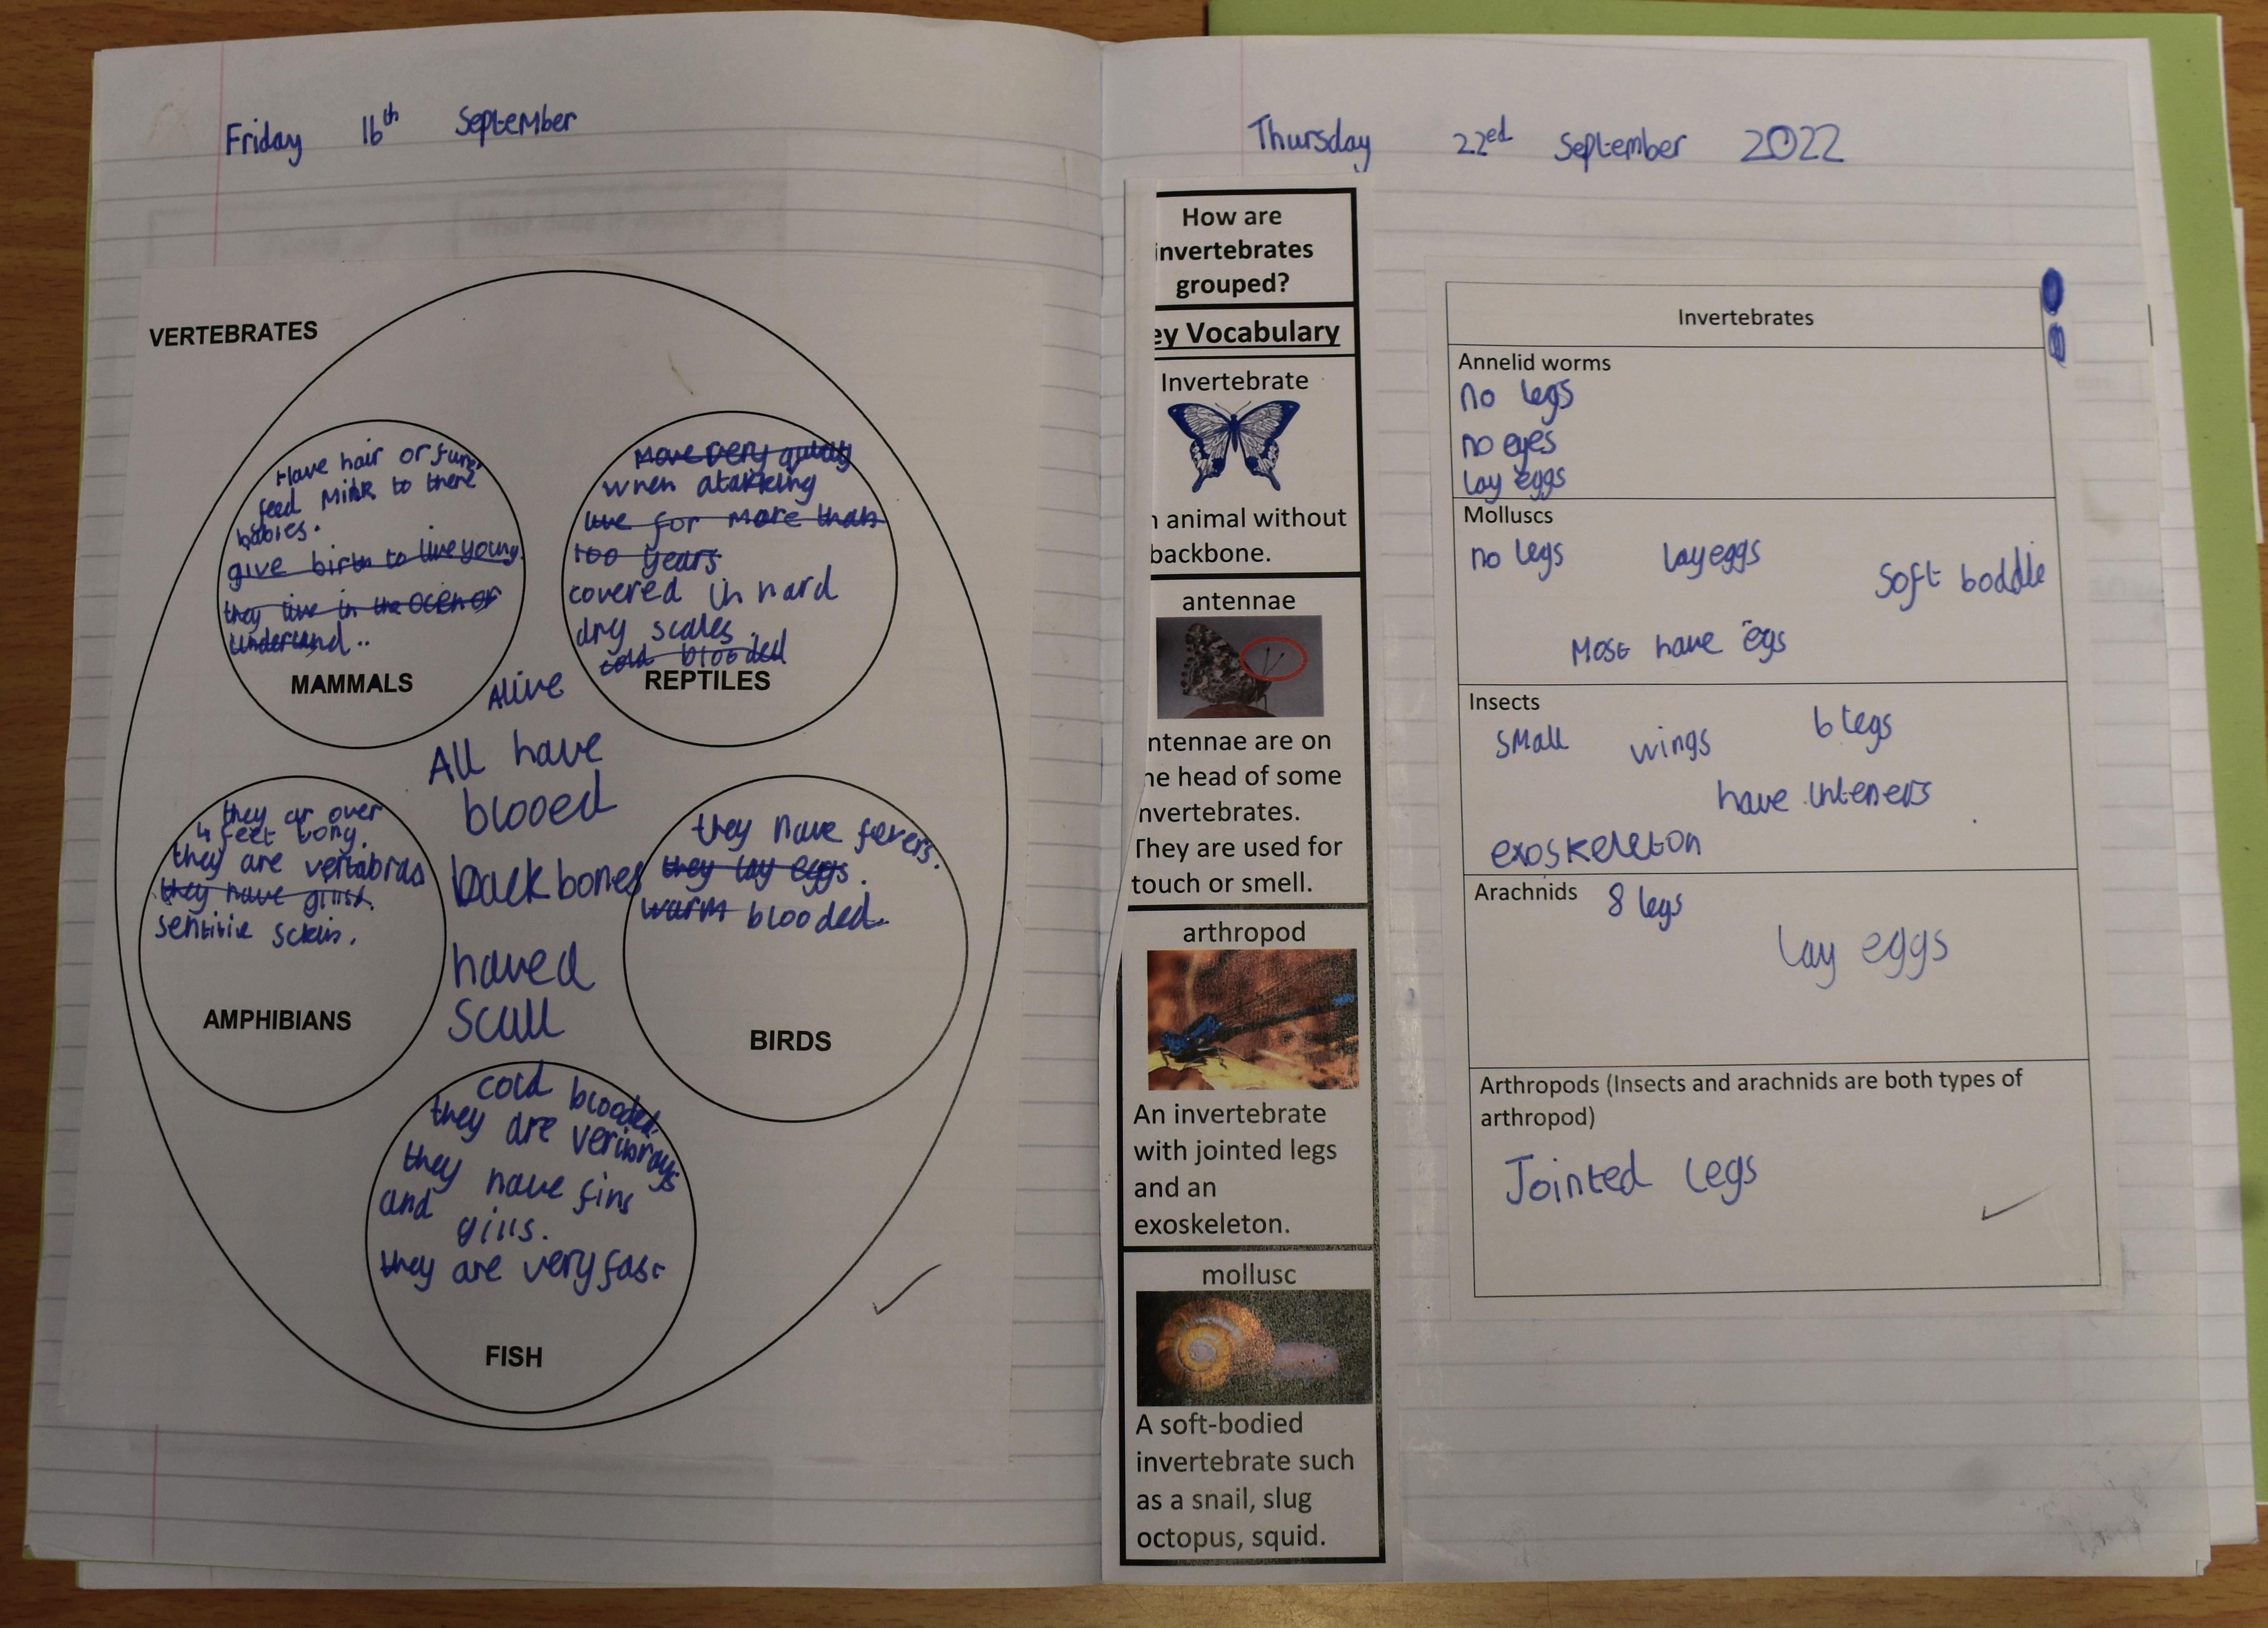 Friday 16th September
VERTEBRATES
Have hair or fur
feed Milk to there
babies.
give birth to live young.
they live in the ocen or
underland..
MAMMALS
Move very quickly
when atakking
live for more than
100 years
covered in hard
dry scales
cold blooded
REPTILES
Alive
All have
blooed
backbones
haved
scull
they ar over
4 feet long.
they are vertabras
they have gills.
sentitive sckin.
AMPHIBIANS
they have fevers.
they lay eggs.
warm blooded.
BIRDS
cold blooded.
they are veribrays
they have fins
and gills.
they are very fast
FISH
Thursday 22ed September 2022
How are
invertebrates
grouped?
ey Vocabulary
Invertebrate
n animal without
backbone.
antennae
ntennae are on
he head of some
nvertebrates.
They are used for
touch or smell.
arthropod
An invertebrate
with jointed legs
and an
exoskeleton.
mollusc
A soft-bodied
invertebrate such
as a snail, slug
octopus, squid.
Invertebrates
Annelid worms
no legs
no eyes
lay eggs
Molluscs
no legs lay eggs soft boddie
Most have egs
Insects
small wings 6 legs
have inteners
exoskeleton
Arachnids 8 legs
lay eggs
Arthropods (Insects and arachnids are both types of
arthropod)
Jointed legs